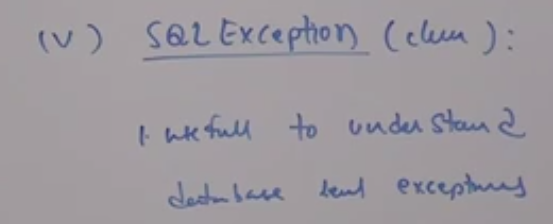 (V) SQL Exception (class):
1. usefull to understand
database level exceptions